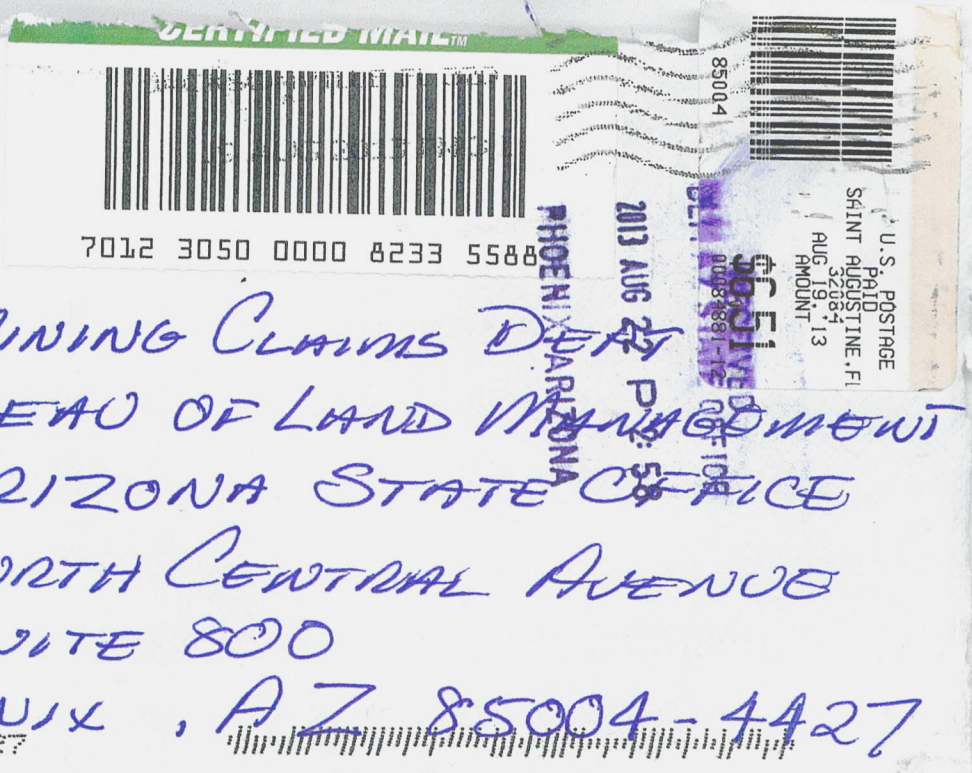 CERTIFIED MAIL™
7012 3050 0000 8233 5588
85004
U.S. POSTAGE
PAID
SAINT AUGUSTINE, FL
32084
AUG 19, 13
AMOUNT
$6.51
00084881-12
2013 AUG 22 P 2:58
PHOENIX ARIZONA
OFFICE
INING CLAIMS DEPT
EAU OF LAND MANAGEMENT
RIZONA STATE OFFICE
ORTH CENTRAL AVENUE
UITE 800
NIX, AZ 85004-4427
27